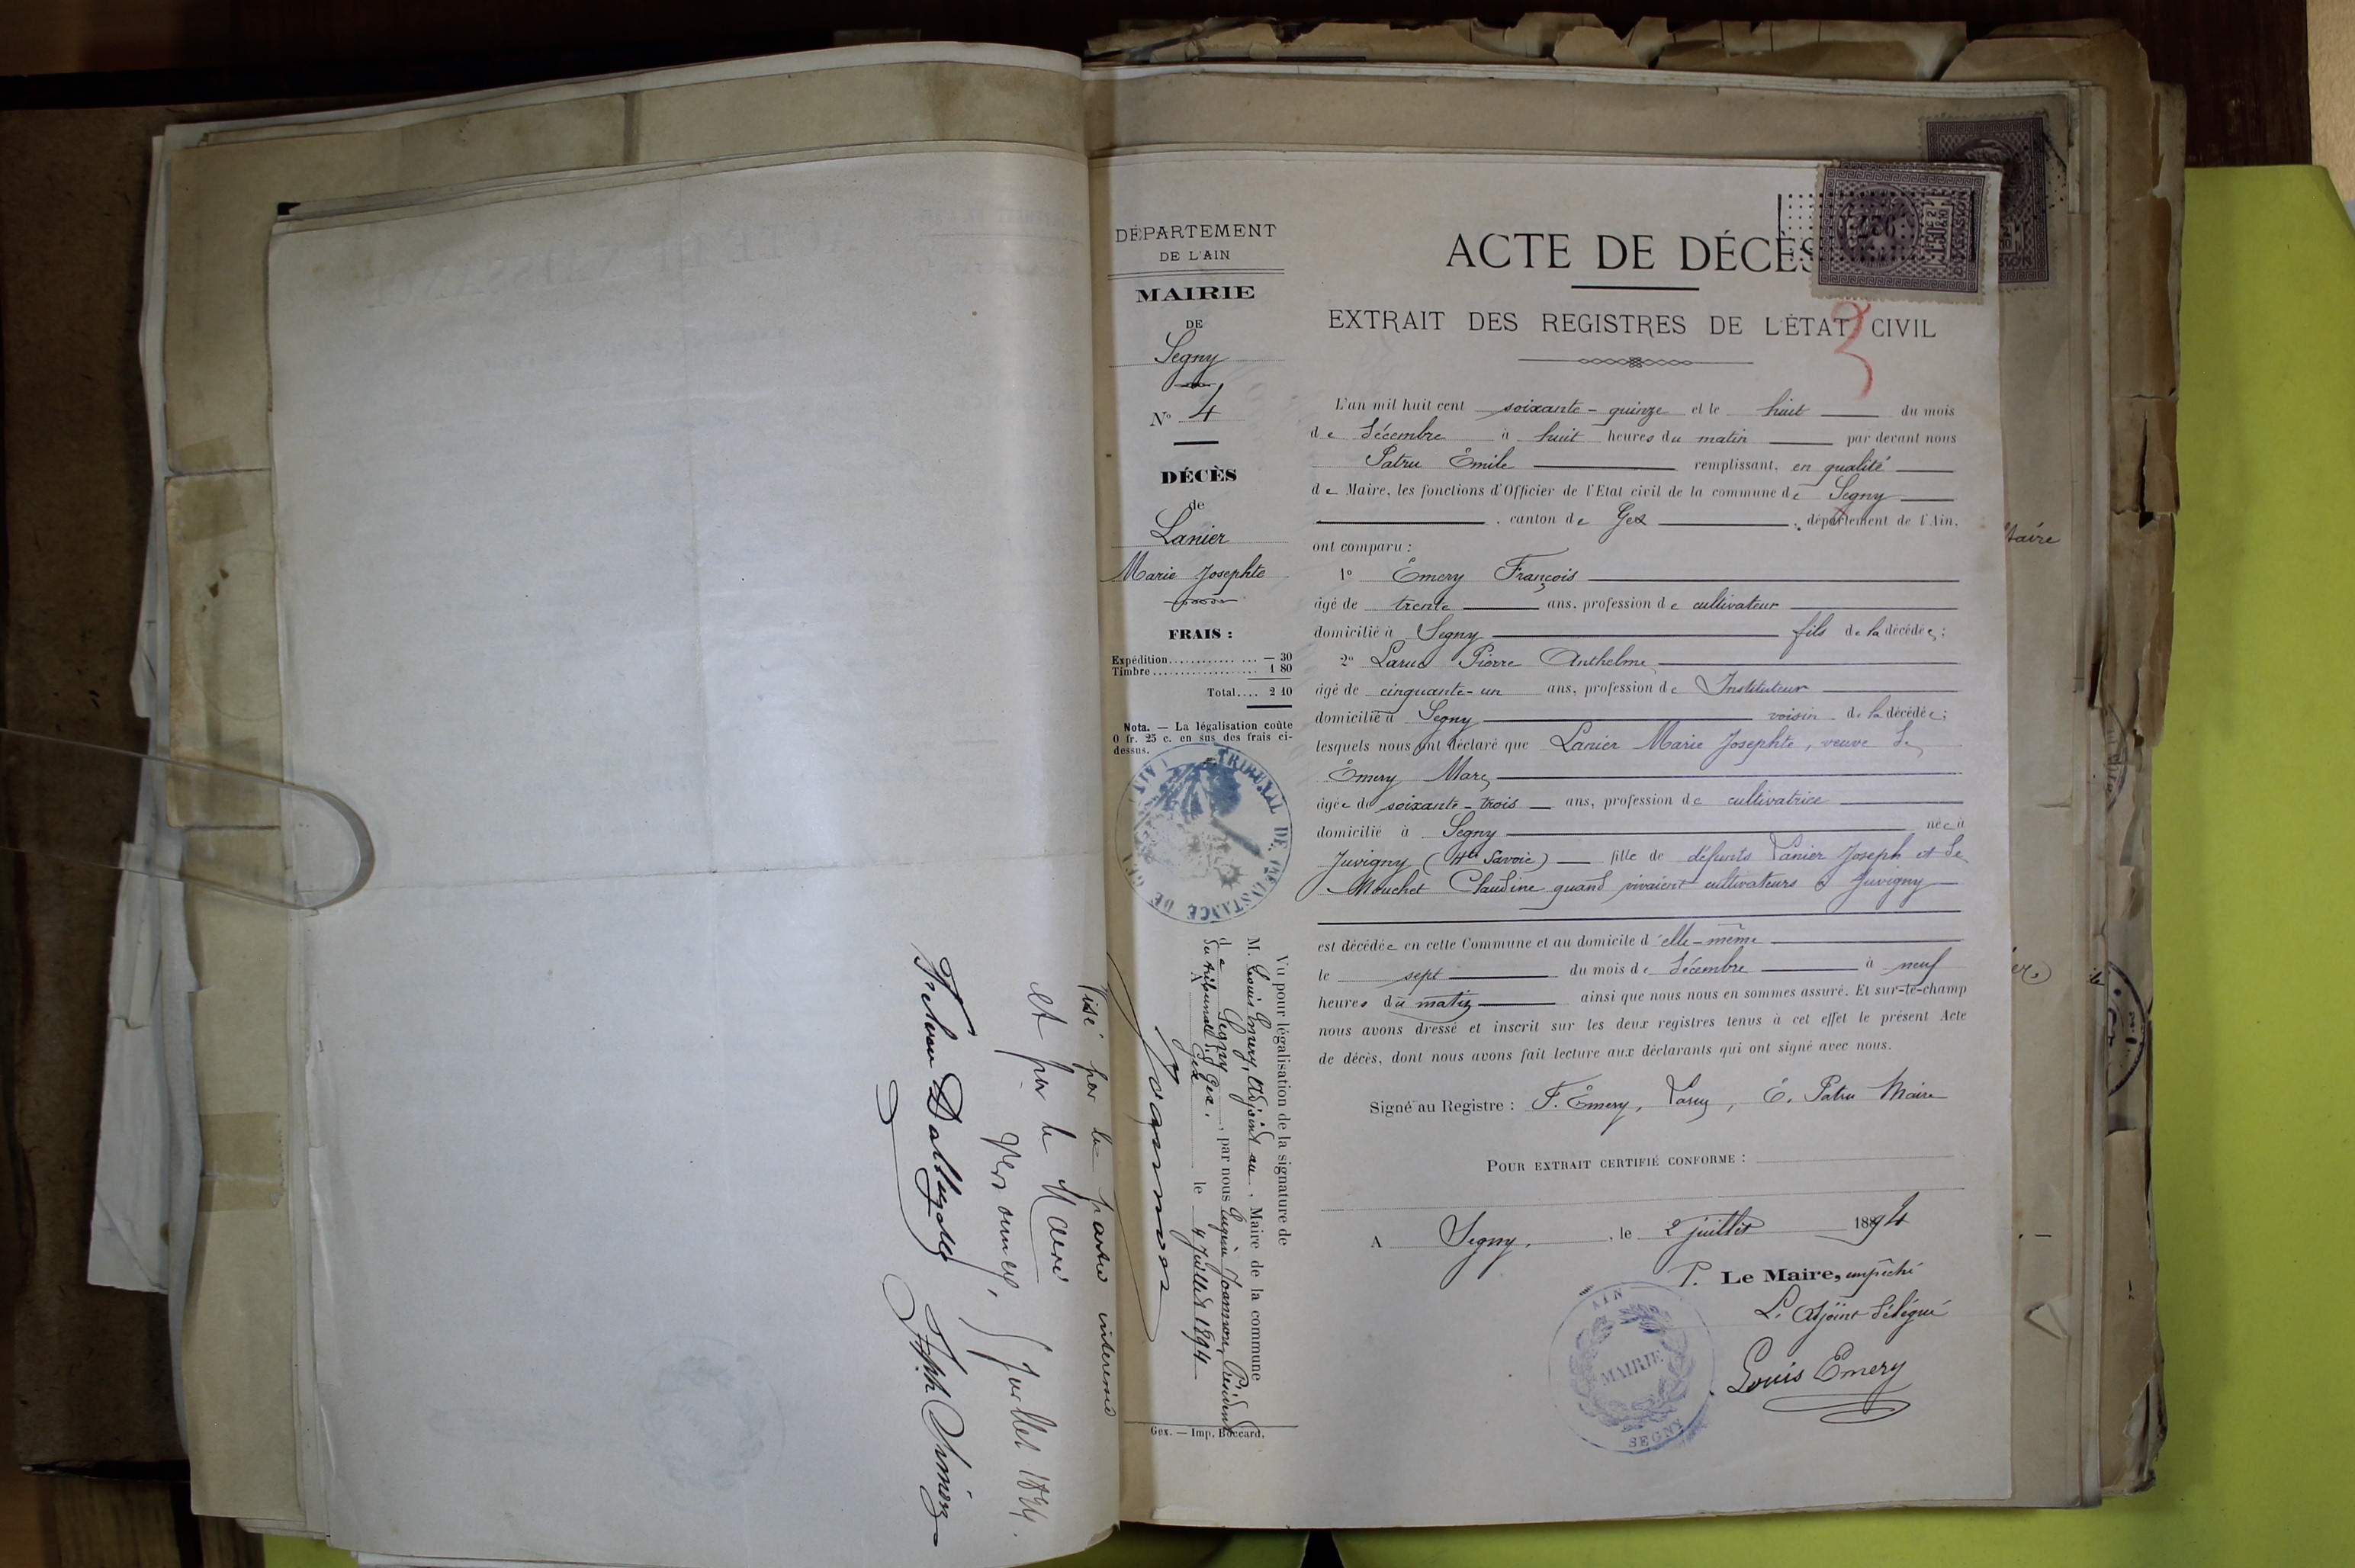 DÉPARTEMENT
DE L'AIN
MAIRIE
DE
Segny
N° 4
DÉCÈS
de
Lanier
Marie Josephte
FRAIS :
Expédition............ ... — 30
Timbre.................. 1 80
Total.... 2 10
Nota. — La légalisation coûte
0 fr. 25 c. en sus des frais ci-
dessus.
TRIBUNAL DE 1RE INSTANCE DE GEX (AIN)
Vu pour légalisation de la signature de
M. Louis Emery, Adjoint au, Maire de la commune
de Segny, par nous Eugène Joannon, Président
du tribunal de Gex.
A Gex le 4 Juillet 1894
Joannon
Gex. — Imp. Boccard.
ACTE DE DÉCÈS
EXTRAIT DES REGISTRES DE L'ÉTAT CIVIL
3
L'an mil huit cent soixante-quinze et le huit du mois
de Décembre à huit heures du matin par devant nous
Patru Emile remplissant, en qualité
de Maire, les fonctions d'Officier de l'Etat civil de la commune de Segny
, canton de Gex, département de l'Ain,
ont comparu :
1° Émery François
âgé de trente ans, profession de cultivateur
domicilié à Segny fils de la décédée;
2° Laruaz Pierre Anthelme
âgé de cinquante-un ans, profession de Instituteur
domicilié à Segny voisin de la décédée;
lesquels nous ont déclaré que Lanier Marie Josephte, veuve de
Émery Marc,
âgée de soixante-trois ans, profession de cultivatrice
domicilié à Segny née à
Juvigny (Hte Savoie) fille de défunts Lanier Joseph et de
Mouchet Claudine quand vivaient cultivateurs à Juvigny
est décédée en cette Commune et au domicile d'elle-même
le sept du mois de Décembre à neuf
heures du matin ainsi que nous nous en sommes assuré. Et sur-le-champ
nous avons dressé et inscrit sur les deux registres tenus à cet effet le présent Acte
de décès, dont nous avons fait lecture aux déclarants qui ont signé avec nous.
Signé au Registre : F. Émery, É. Patru Maire
POUR EXTRAIT CERTIFIÉ CONFORME :
A Segny, le 2 juillet 1894
P. Le Maire, empêché
L'Adjoint délégué
Louis Emery
AIN
MAIRIE
SEGNY
Visé par les parties
et par le Maire
Juillet 1894.